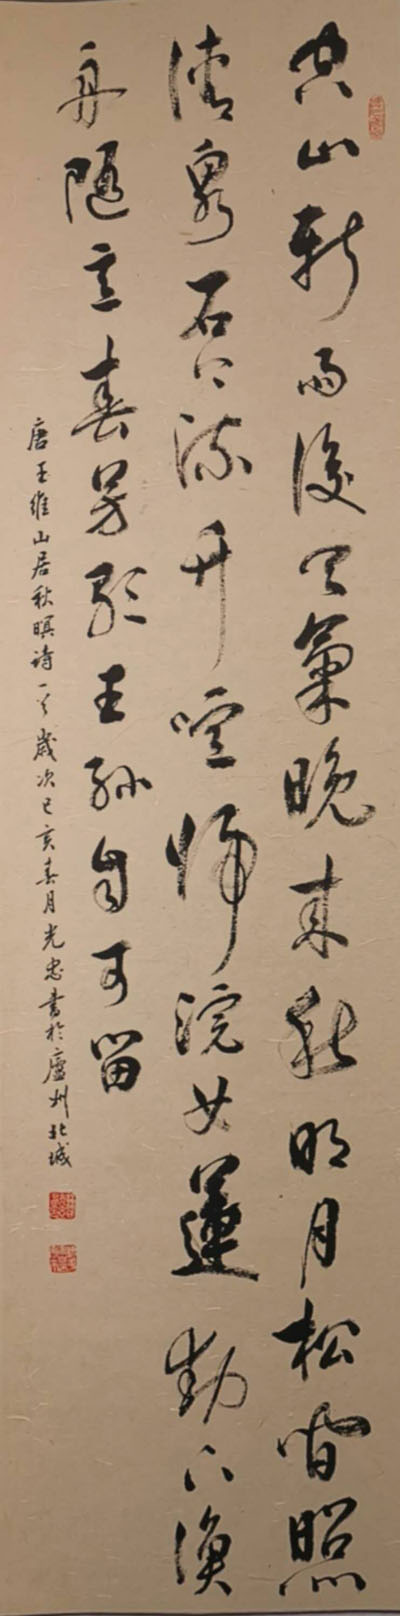 空山新雨後天氣晚來秋明月松間照
清泉石上流竹喧歸浣女蓮動下漁
舟隨意春芳歇王孫自可留
唐王維山居秋暝詩一首歲次己亥春月光忠書於廬州北城